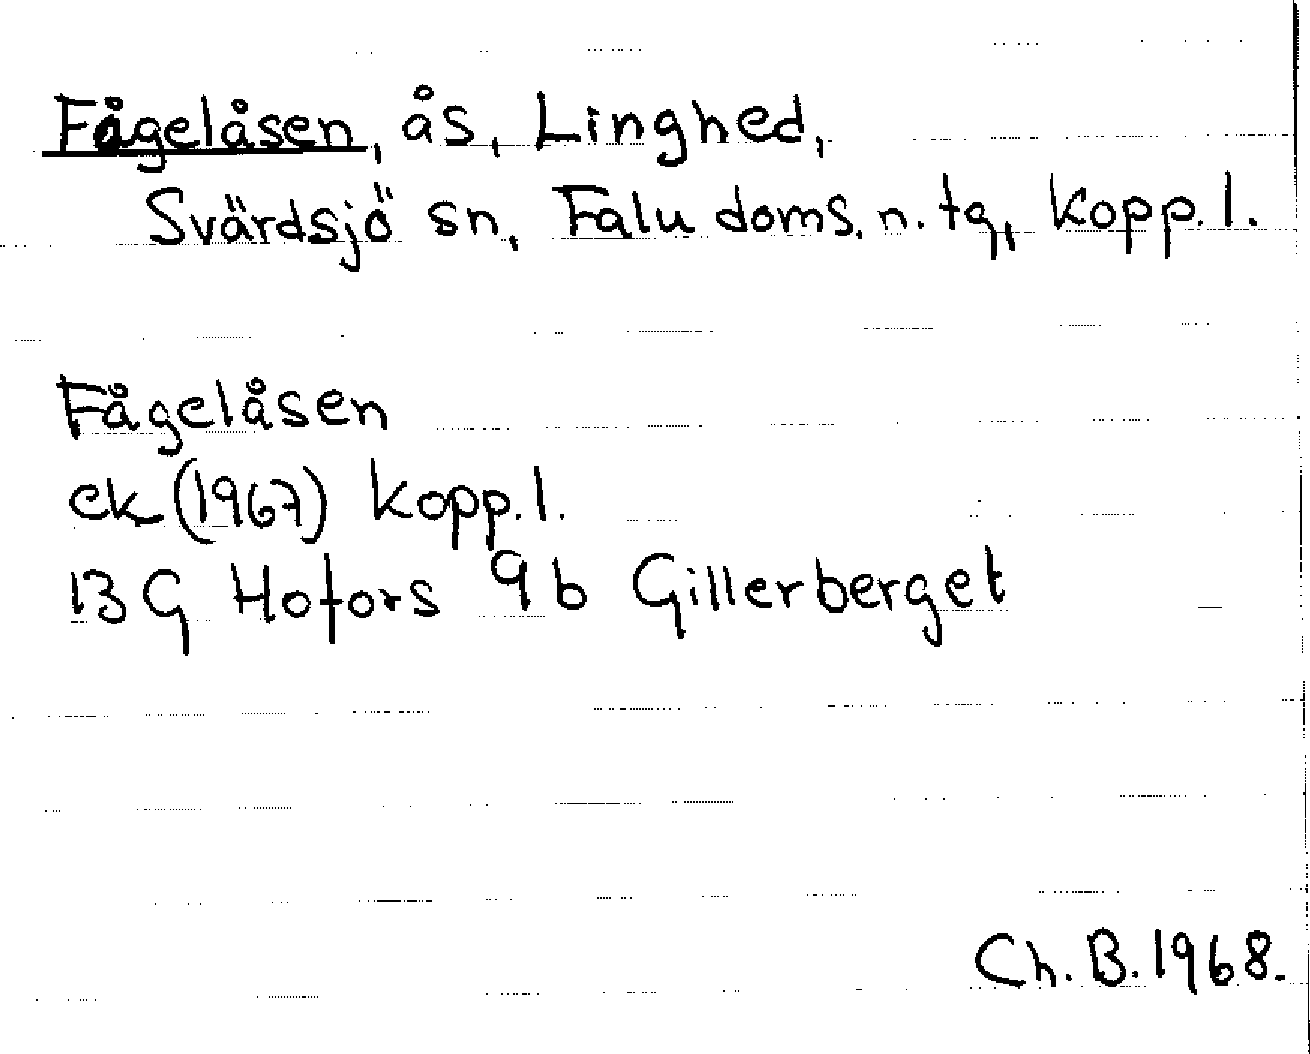 Fågelåsen, ås, Linghed,
Svärdsjö sn, Falu doms. n. tg, Kopp. l.
Fågelåsen
ek (1967) Kopp. l.
13 G Hofors 9 b Gillerberget
Ch. B. 1968.